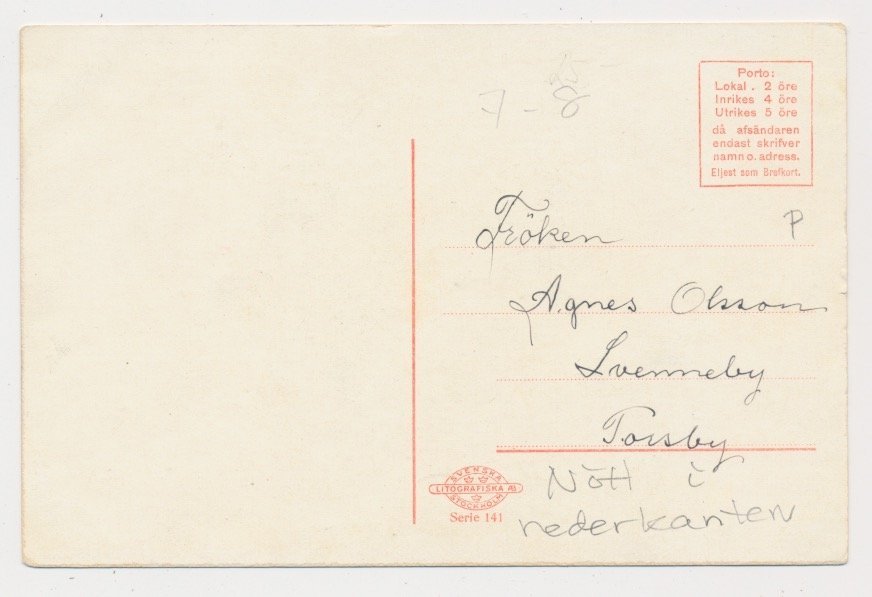 7 - 8
Porto:
Lokal . 2 öre
Inrikes 4 öre
Utrikes 5 öre
då afsändaren
endast skrifver
namn o. adress.
Eljest som Brefkort.
P
Fröken
Agnes Olsson
Svenneby
Torsby
SVENSKA
LITOGRAFISKA AB
STOCKHOLM
Serie 141
Nött i
nederkanten